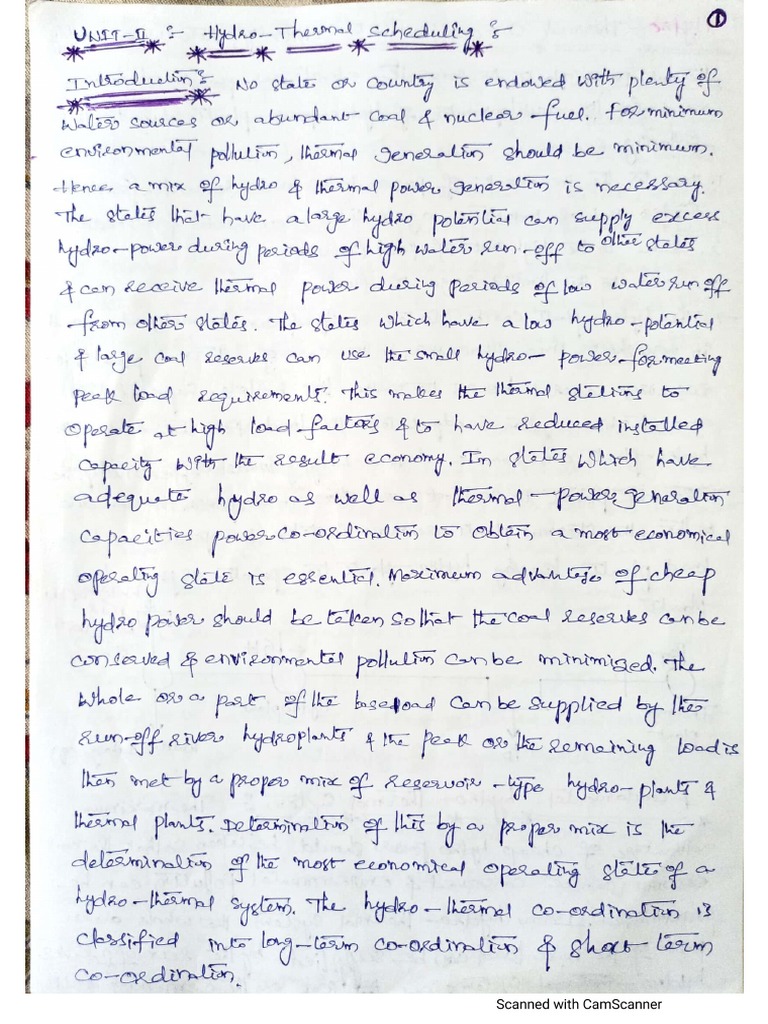 ①
UNIT-II :- Hydro-Thermal Scheduling :-
Introduction :- No state or country is endowed with plenty of
water sources or abundant coal & nuclear fuel. For minimum
environmental pollution, thermal generation should be minimum.
Hence a mix of hydro & thermal power generation is necessary.
The states that have a large hydro potential can supply excess
hydro-power during periods of high water run-off to other states
& can receive thermal power during periods of low water run off
from other states. The states which have a low hydro-potential
& large coal reserves can use the small hydro-power for meeting
peak load requirements. This makes the thermal stations to
operate at high load-factors & to have reduced installed
capacity with the result economy. In states which have
adequate hydro as well as thermal-power generation
capacities power co-ordination to obtain a most economical
operating state is essential. Maximum advantage of cheap
hydro power should be taken so that the coal reserves can be
conserved & environmental pollution can be minimized. The
whole or a part of the base load can be supplied by the
run-off river hydroplants & the peak or the remaining load is
then met by a proper mix of reservoir-type hydro-plants &
thermal plants. Determination of this by a proper mix is the
determination of the most economical operating state of a
hydro-thermal system. The hydro-thermal co-ordination is
classified into long-term co-ordination & short term
co-ordination.
Scanned with CamScanner